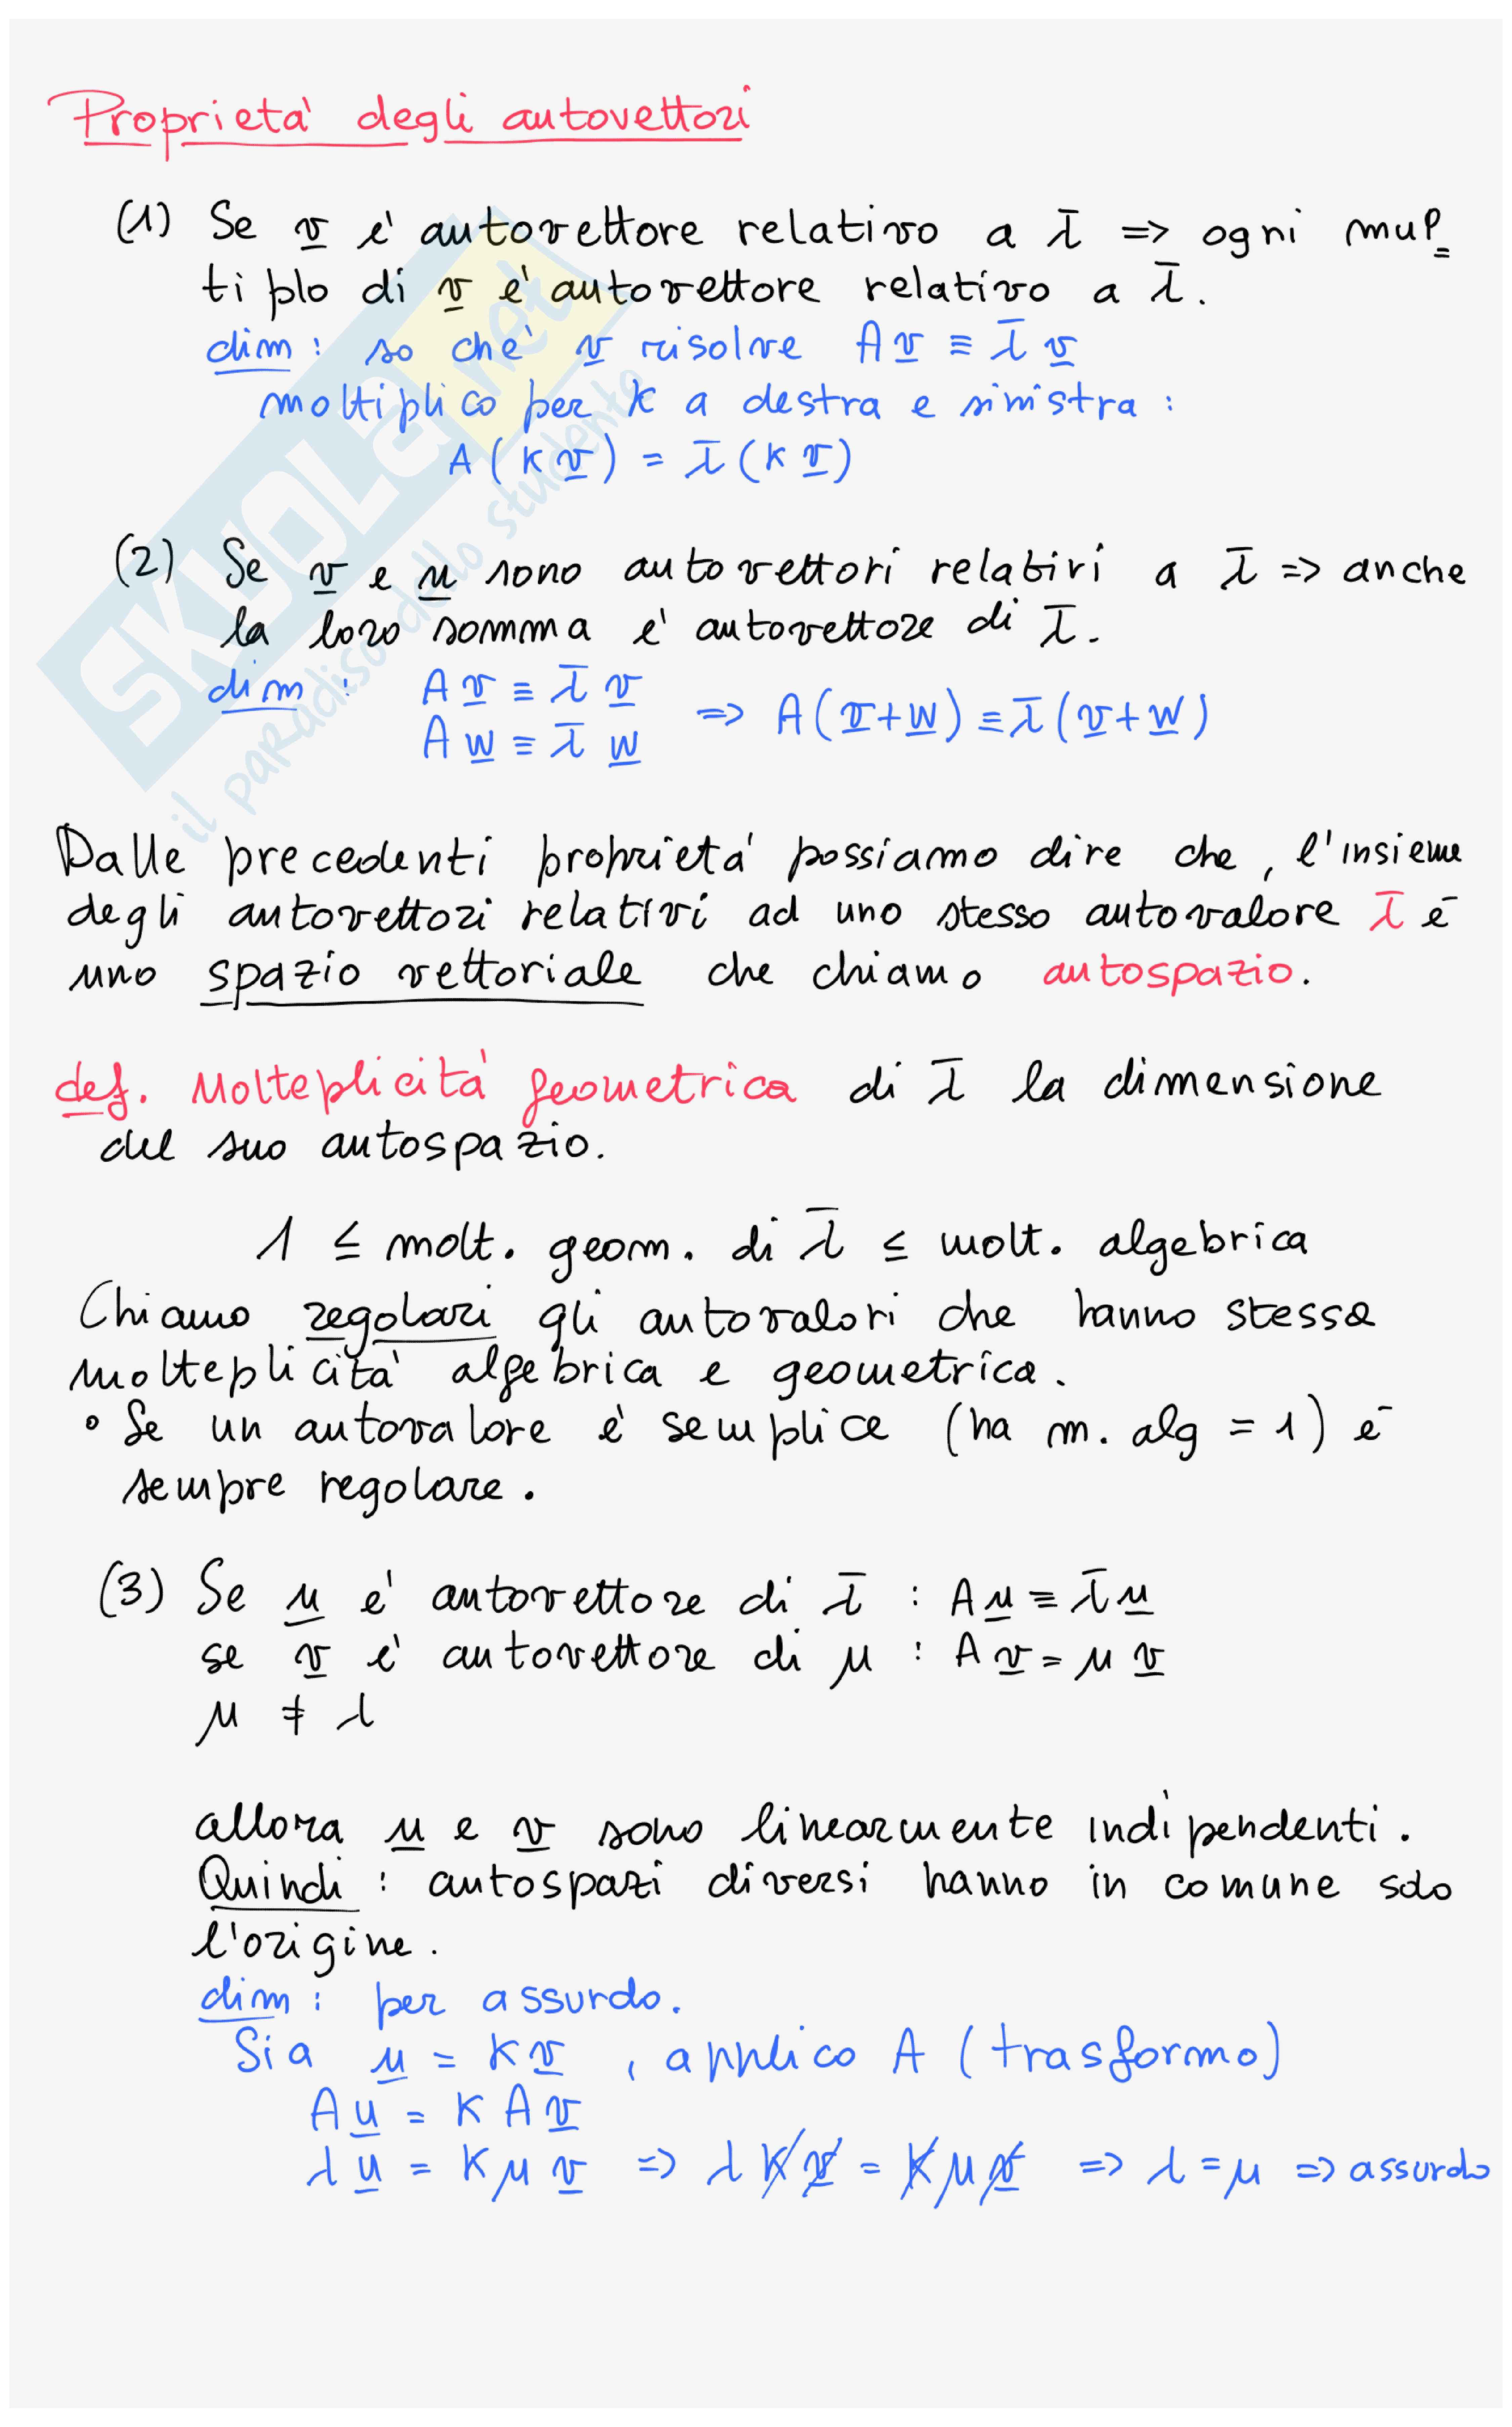 Proprietà degli autovettori
(1) Se v è autovettore relativo a λ̄ => ogni mul=
tiplo di v è autovettore relativo a λ̄.
dim: so che v risolve Av ≡ λ̄ v
moltiplico per k a destra e sinistra:
A(kv) = λ̄(kv)
(2) Se v e u sono autovettori relativi a λ̄ => anche
la loro somma è autovettore di λ̄.
dim: Av ≡ λ̄ v
Aw ≡ λ̄ w => A(v+w) ≡ λ̄(v+w)
Dalle precedenti proprietà possiamo dire che, l'insieme
degli autovettori relativi ad uno stesso autovalore λ̄ è
uno spazio vettoriale che chiamo autospazio.
def. Molteplicità geometrica di λ̄ la dimensione
del suo autospazio.
1 ≤ molt. geom. di λ̄ ≤ molt. algebrica
Chiamo regolari gli autovalori che hanno stessa
molteplicità algebrica e geometrica.
• Se un autovalore è semplice (ha m. alg = 1) è
sempre regolare.
(3) Se u è autovettore di λ̄ : Au ≡ λ̄u
se v è autovettore di μ : Av = μ v
μ ≠ λ
allora u e v sono linearmente indipendenti.
Quindi : autospazi diversi hanno in comune solo
l'origine.
dim: per assurdo.
Sia u = kv, applico A (trasformo)
Au = kAv
λu = kμv => λkv = kμv => λ=μ => assurdo
SKUOLA.net
il paradiso dello studente